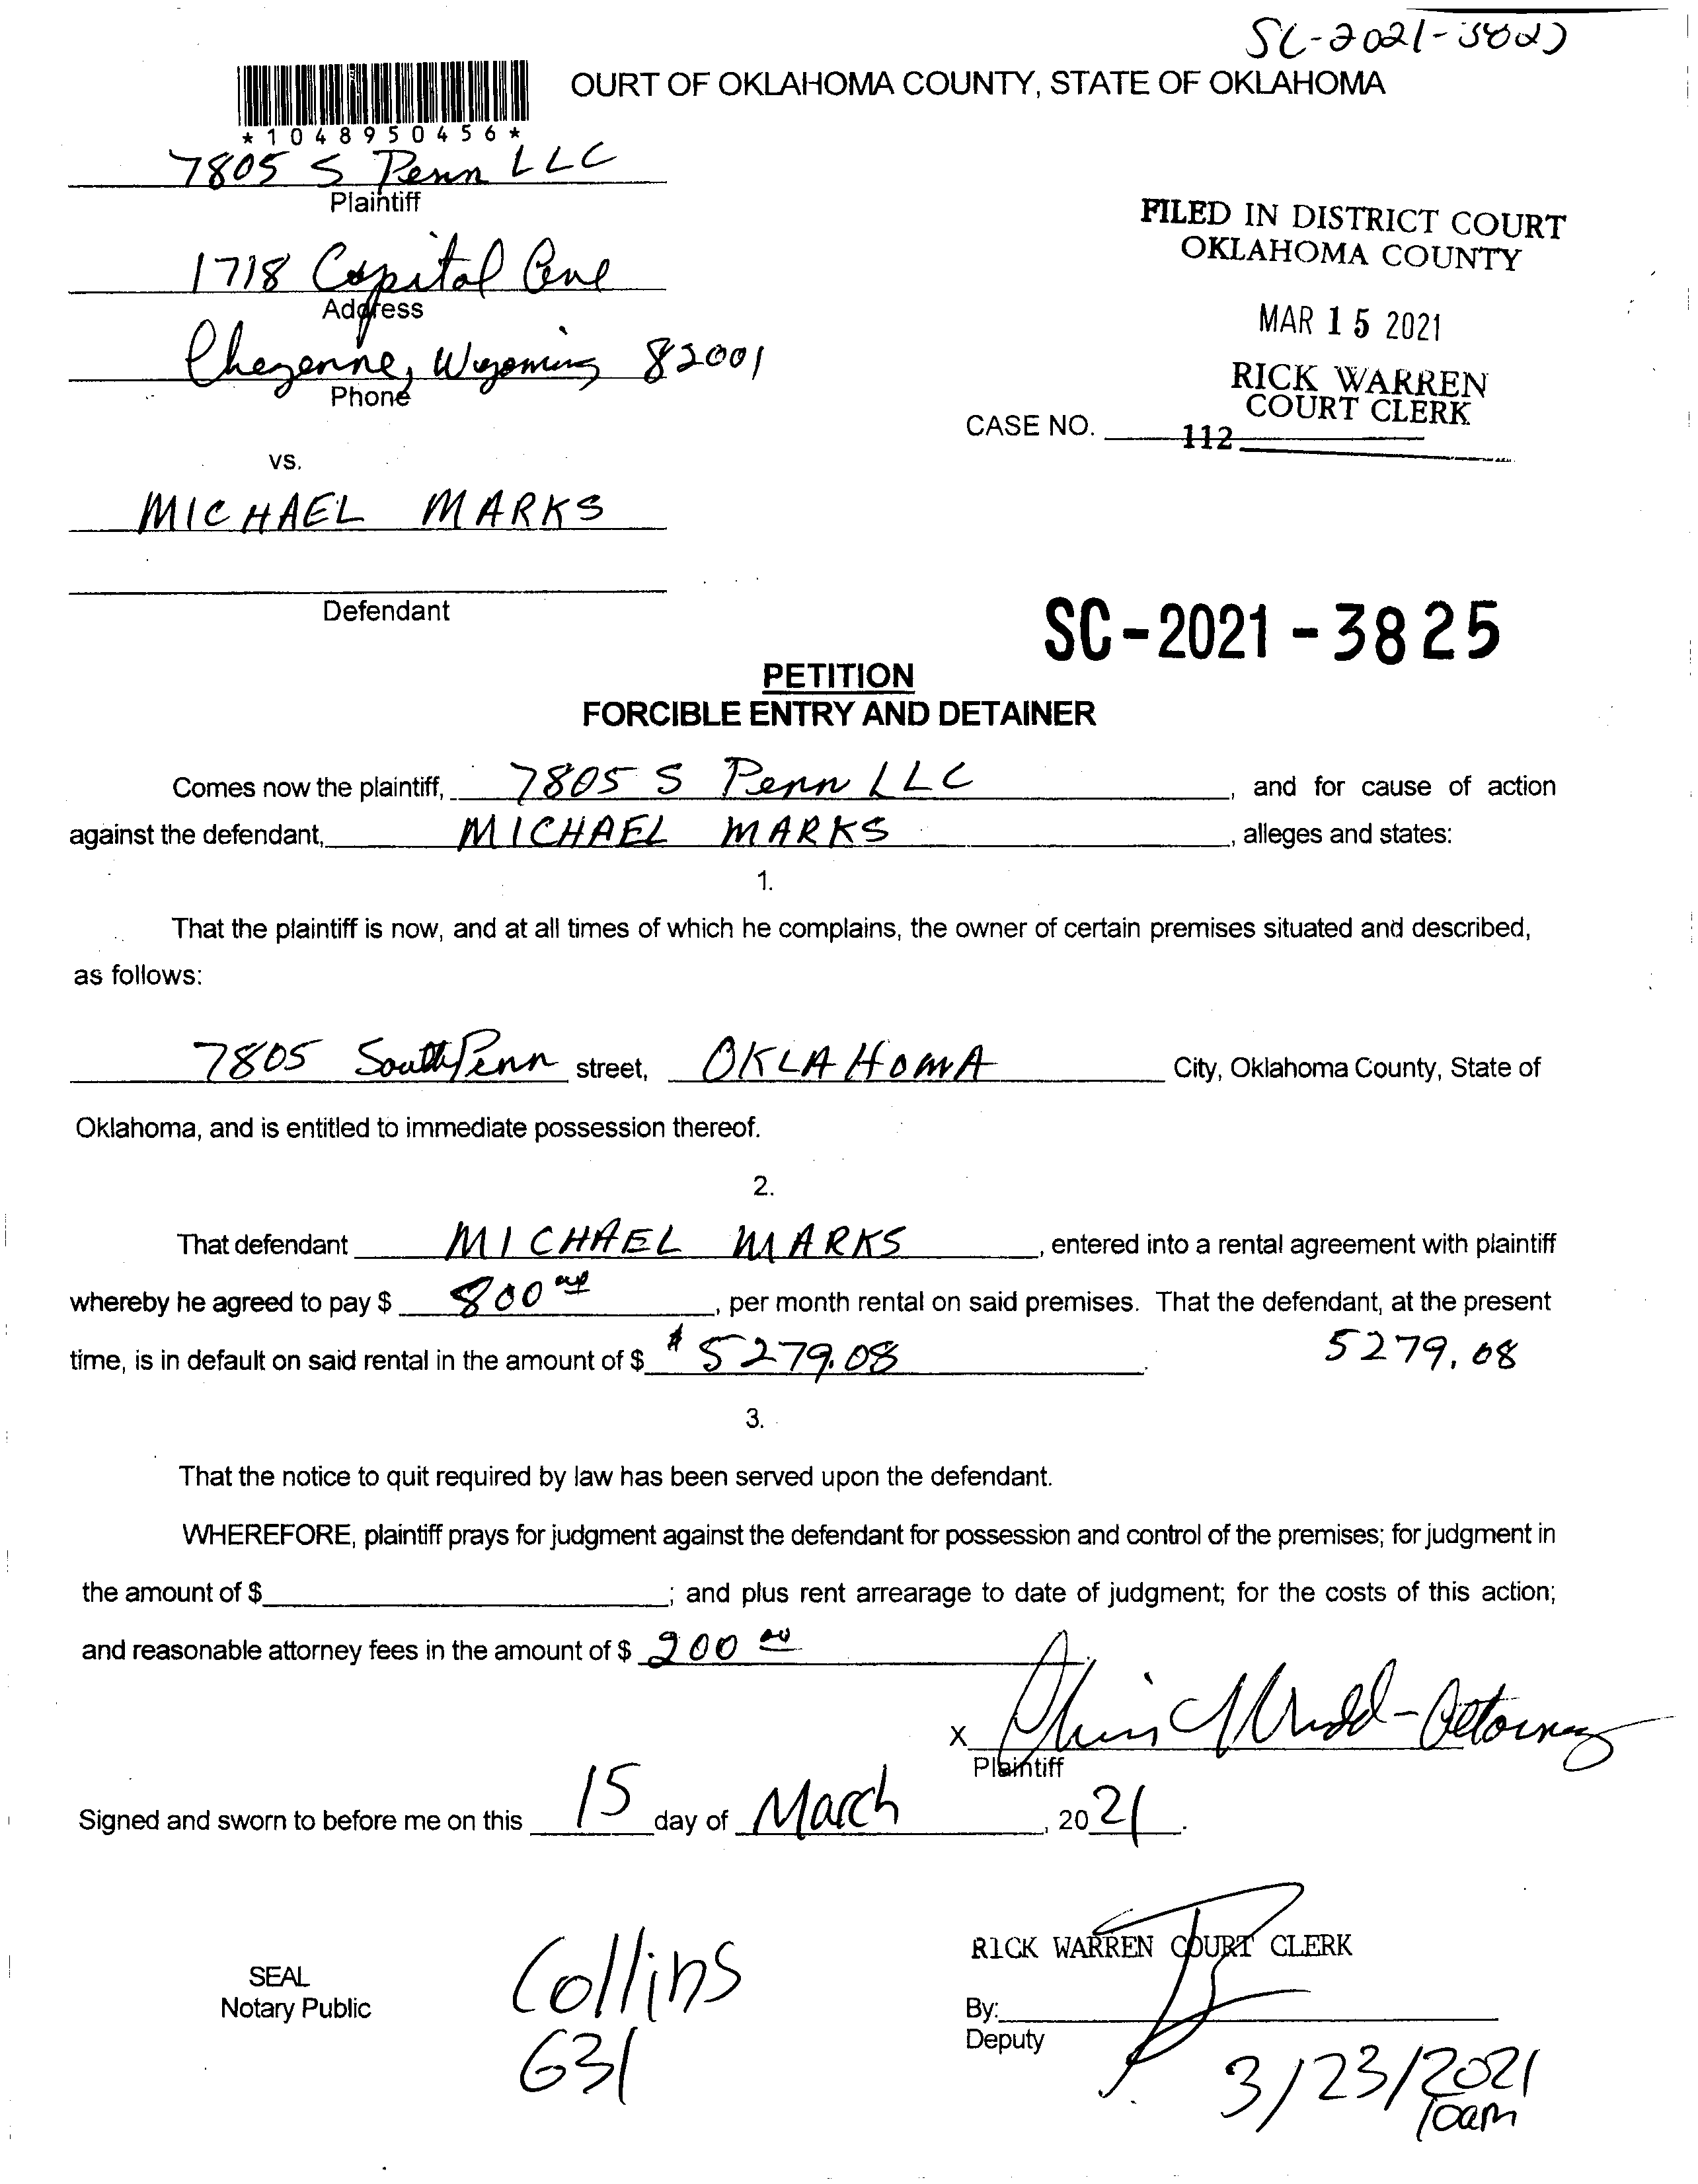 SC-2021-3825
OURT OF OKLAHOMA COUNTY, STATE OF OKLAHOMA
*1048950456*
7805 S Penn LLC
Plaintiff
FILED IN DISTRICT COURT
OKLAHOMA COUNTY
1718 Capitol Ave
Address
MAR 15 2021
Cheyenne, Wyoming 82001
Phone
RICK WARREN
COURT CLERK
CASE NO. 112
vs.
MICHAEL MARKS
Defendant
SC-2021-3825
PETITION
FORCIBLE ENTRY AND DETAINER
Comes now the plaintiff, 7805 S Penn LLC, and for cause of action
against the defendant, MICHAEL MARKS, alleges and states:
1.
That the plaintiff is now, and at all times of which he complains, the owner of certain premises situated and described,
as follows:
7805 South Penn street, OKLAHOMA City, Oklahoma County, State of
Oklahoma, and is entitled to immediate possession thereof.
2.
That defendant MICHAEL MARKS, entered into a rental agreement with plaintiff
whereby he agreed to pay $ 800, per month rental on said premises. That the defendant, at the present
time, is in default on said rental in the amount of $ $5279.08. 5279.08
3.
That the notice to quit required by law has been served upon the defendant.
WHEREFORE, plaintiff prays for judgment against the defendant for possession and control of the premises; for judgment in
the amount of $; and plus rent arrearage to date of judgment; for the costs of this action;
and reasonable attorney fees in the amount of $ 200
X - Attorney
Plaintiff
Signed and sworn to before me on this 15 day of March, 2021.
RICK WARREN COURT CLERK
SEAL
Notary Public
Collins
631
By:
Deputy
3/23/2021
10am